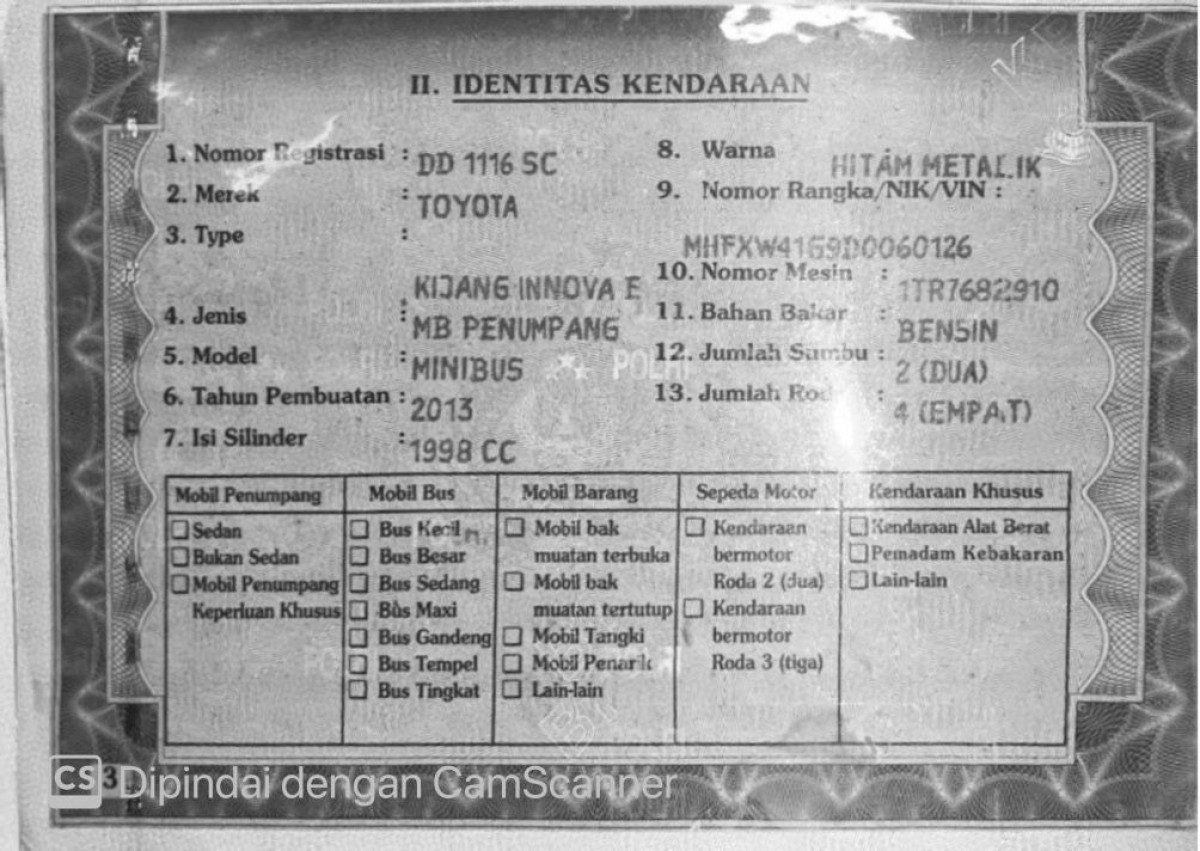 II. IDENTITAS KENDARAAN
1. Nomor Registrasi : DD 1116 SC
2. Merek : TOYOTA
3. Type :
KIJANG INNOVA E
4. Jenis : MB PENUMPANG
5. Model : MINIBUS
6. Tahun Pembuatan : 2013
7. Isi Silinder : 1998 CC
8. Warna HITAM METALIK
9. Nomor Rangka/NIK/VIN :
MHFXW41G9D0060126
10. Nomor Mesin : 1TR7682910
11. Bahan Bakar : BENSIN
12. Jumlah Sumbu : 2 (DUA)
13. Jumlah Roda : 4 (EMPAT)
Mobil Penumpang
Sedan
Bukan Sedan
Mobil Penumpang
Keperluan Khusus
Mobil Bus
Bus Kecil
Bus Besar
Bus Sedang
Bus Maxi
Bus Gandeng
Bus Tempel
Bus Tingkat
Mobil Barang
Mobil bak
muatan terbuka
Mobil bak
muatan tertutup
Mobil Tangki
Mobil Penarik
Lain-lain
Sepeda Motor
Kendaraan
bermotor
Roda 2 (dua)
Kendaraan
bermotor
Roda 3 (tiga)
Kendaraan Khusus
Kendaraan Alat Berat
Pemadam Kebakaran
Lain-lain
POLRI
CS 3 Dipindai dengan CamScanner